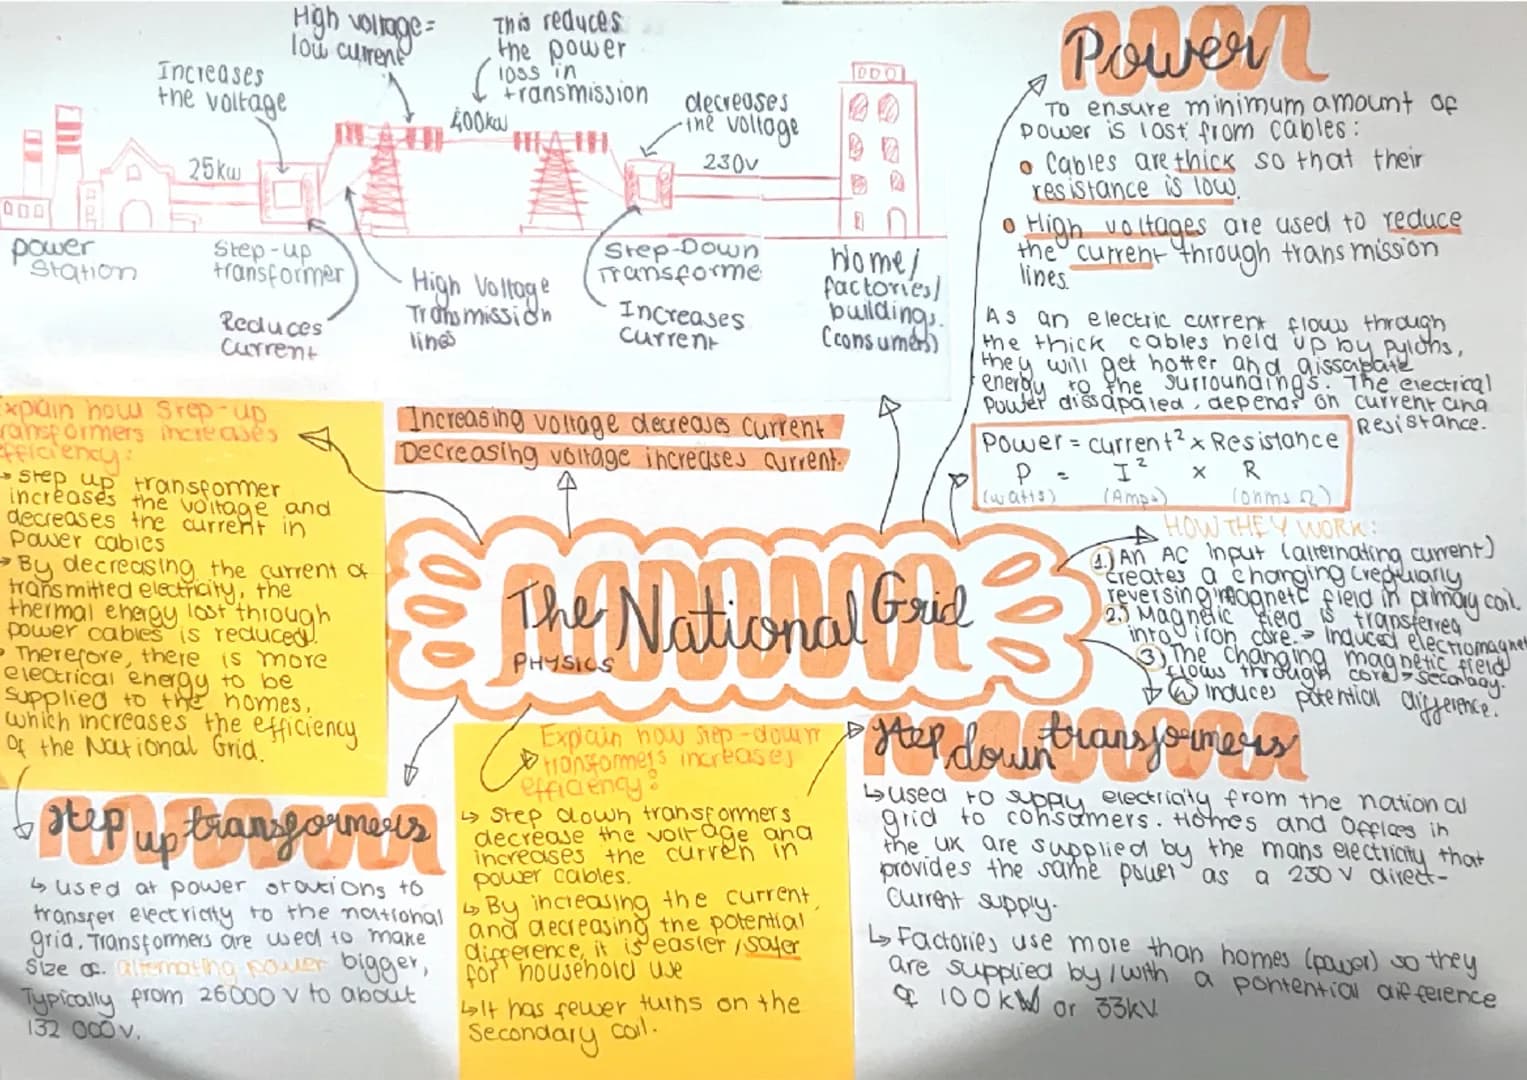 High voltage =
low current
This reduces
the power
loss in
transmission
Increases
the voltage
decreases
the voltage
25kw
400kw
230v
power
station
Step-up
transformer
Reduces
current
High Voltage
Transmission
lines
Step-Down
Transforme
Increases
current
Home/
factories/
buildings.
(consumers)
Power
To ensure minimum amount of
power is lost from cables:
• Cables are thick so that their
resistance is low.
• High voltages are used to reduce
the current through transmission
lines.
As an electric current flows through
the thick cables held up by pylons,
they will get hotter and dissapate
energy to the surroundings. The electrical
power dissapated, depends on current and
Resistance.
Power = current² × Resistance
P = I² × R
(watts) (Amps) (ohms Ω)
Explain how Step-up
transformers increases
efficiency:
Step up transformer
increases the voltage and
decreases the current in
power cables
By decreasing the current of
transmitted electricity, the
thermal energy lost through
power cables is reduced.
Therefore, there is more
electrical energy to be
supplied to the homes,
which increases the efficiency
of the National Grid.
Increasing voltage decreases current
Decreasing voltage increases current.
The National Grid
PHYSICS
HOW THEY WORK:
1.) An AC input (alternating current)
creates a changing (regularly
reversing) magnetic field in primary coil.
2.) Magnetic field is transferred
into iron core. → Induced electromagnet
3) The changing magnetic field
flows through core → secondary.
4) Induces potential difference.
Step up transformers
↳ used at power stations to
transfer electricity to the national
grid, Transformers are used to make
size of alternating power bigger,
Typically from 25000 V to about
132 000 v.
Explain how step-down
transformers increases
efficiency:
↳ Step down transformers
decrease the voltage and
increases the curren in
power cables.
↳ By increasing the current,
and decreasing the potential
difference, it is easier / safer
for household use
↳ It has fewer turns on the
secondary coil.
Step down transformers
↳ used to supply electricity from the national
grid to consumers. Homes and Offices in
the UK are supplied by the mans electricity that
provides the same power as a 230 V direct-
current supply.
↳ Factories use more than homes (power) so they
are supplied by / with a pontential difference
of 100kW or 33kV